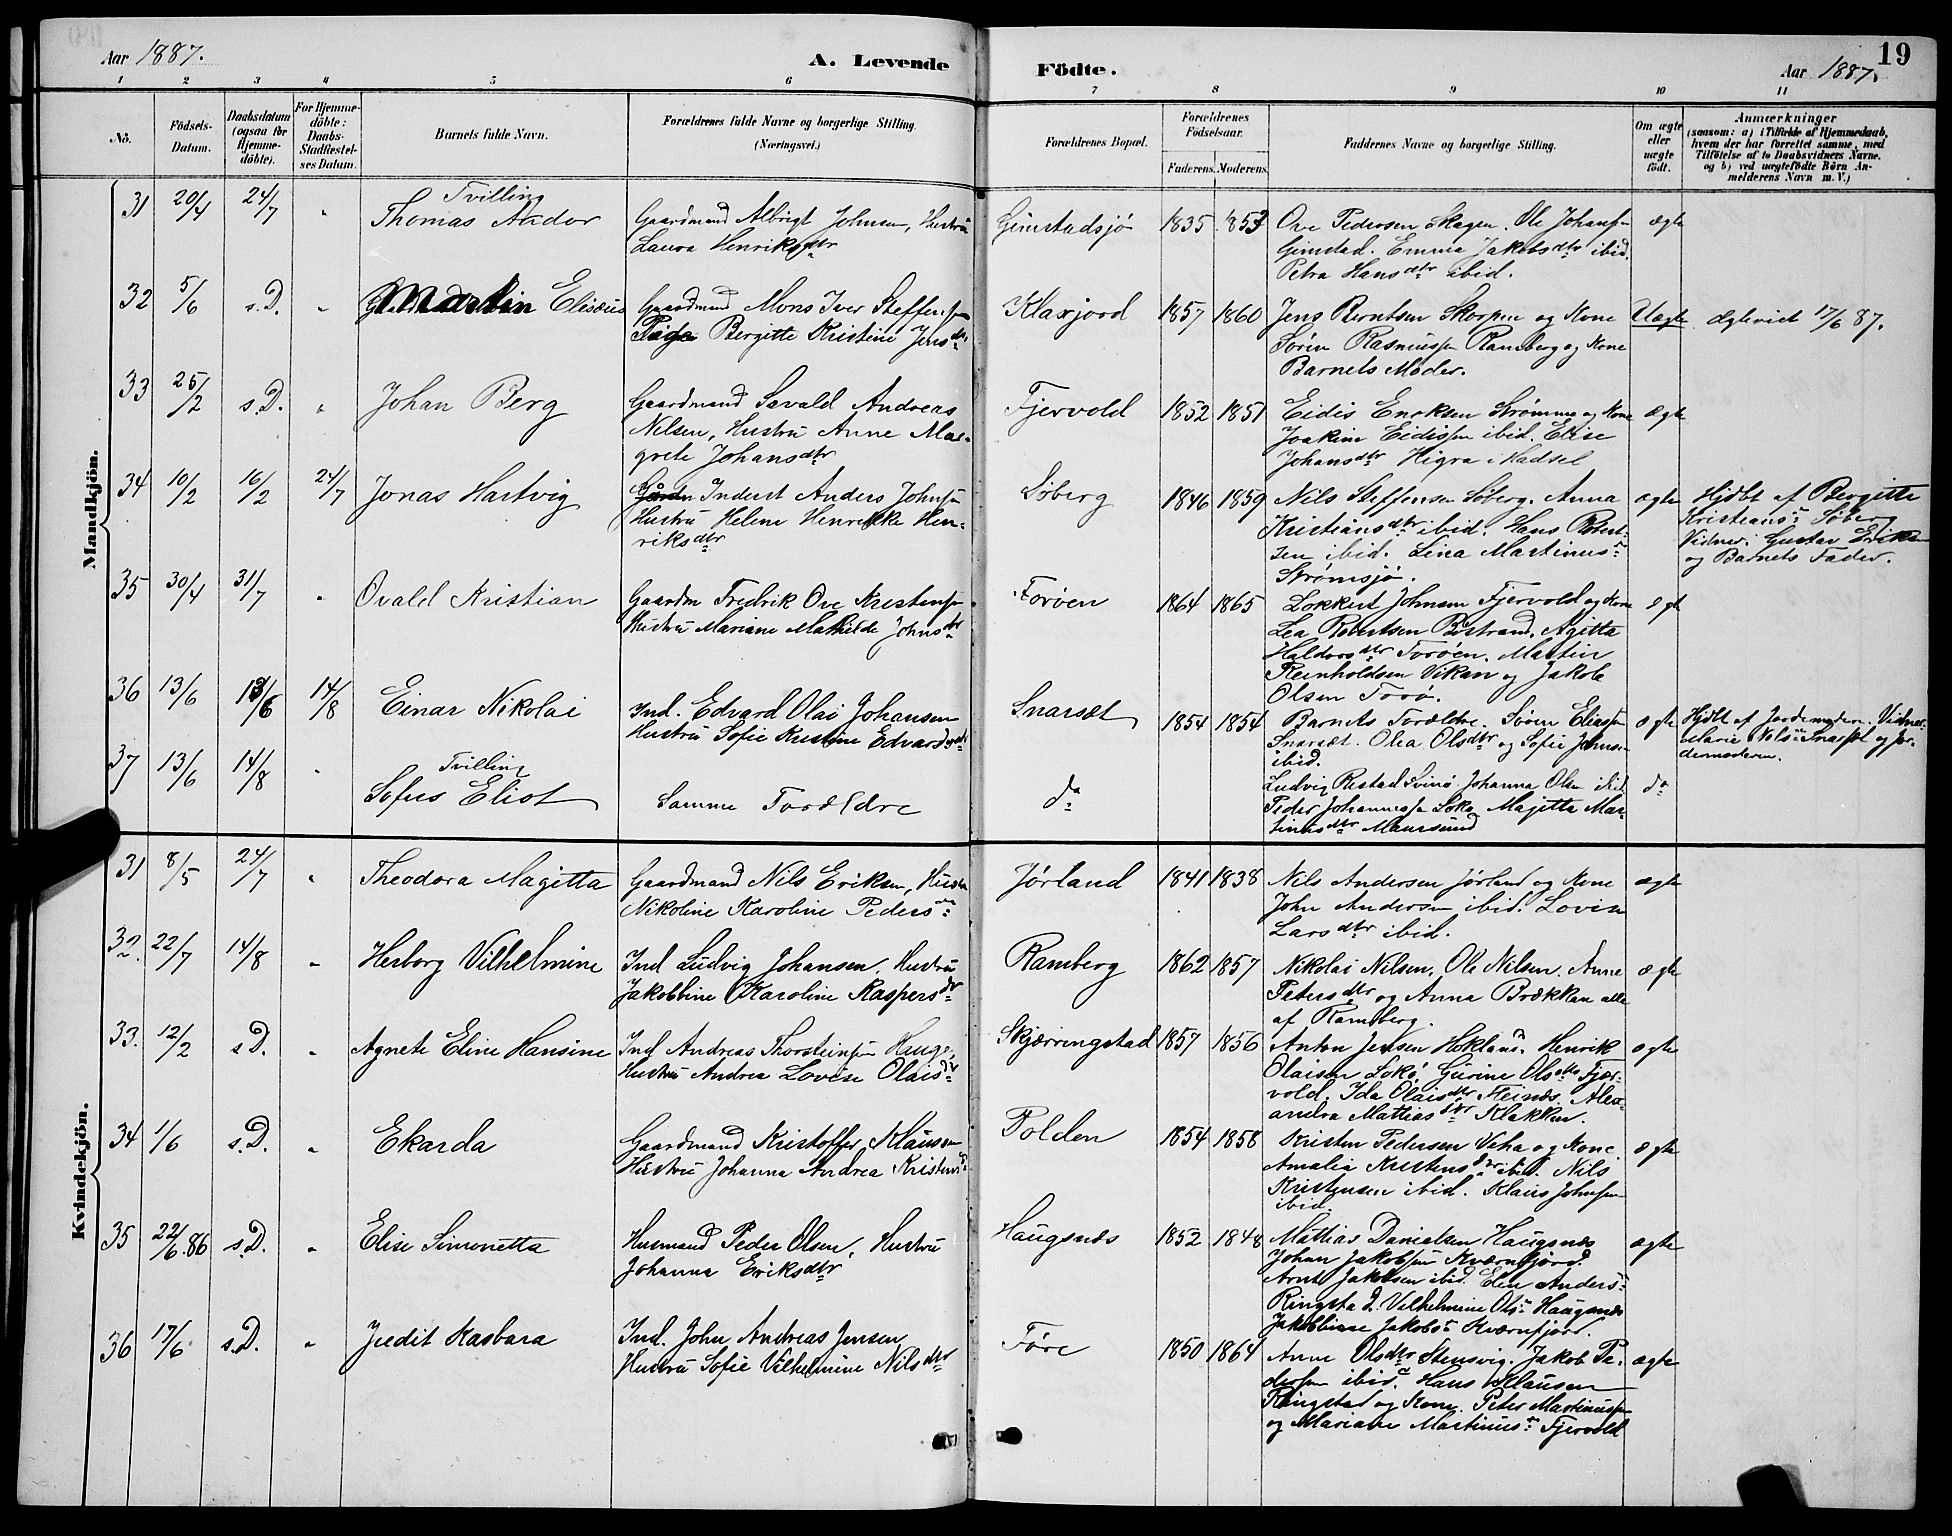 Aar 1887.
A. Levende
Födte.
Aar 1887.
19
1 2 3 4 5 6 7 8 9 10 11
No.
Födsels-
Datum.
Daabsdatum
(ogsaa for
Hjemme-
döbte).
For Hjemme-
döbte:
Daabs-
Stadfæstel-
ses Datum.
Barnets fulde Navn.
Forældrenes fulde Navne og borgerlige Stilling.
(Næringsvei.)
Forældrenes Bopæl.
Forældrenes
Födselsaar.
Faderens. Moderens.
Faddernes Navne og borgerlige Stilling.
Om ægte
eller
uægte
födt.
Anmærkninger
(saasom: a) i Tilfælde af Hjemmedaab,
hvem der har forrettet samme, med
Tilföielse af to Daabsvidners Navne,
og b) ved uægtefödte Börn An-
melderens Navn m. V.)
Mandkjön.
31 20/4 24/7 "
Tvilling
Thomas Andor
Gaardmand Albrigt Johnsen, Hustru
Laura Henriksdtr
Gimstadsjø 1835 1853
Ove Pedersen Skagen. Ole Johans
Gimstad. Emma Jakobsdtr ibid.
Petra Hansdtr ibid.
ægte
32 5/6 s.D. "
Martin Elisæus
Gaardmand Mons Iver Steffensen
Pige Bergitte Kristine Jensdtr
Klaxjord 1857 1860
Jens Berntsen Skorpen og Kone
Sørin Rasmussen Ramberg og Kone
Barnets Moder.
Uægte
ægteviet 17/6 87.
33 25/2 s.D. "
Johan Berg
Gaardmand Savald Andreas
Nilsen, Hustru Anne Mar-
grete Johansdtr
Fjervold 1852 1851
Eidis Eriksen Strømme og Kone
Joakim Eidissen ibid. Elise
Johansdtr Higra i Hadsel
ægte
34 10/2 16/2 24/7
Jonas Hartvig
Inderst Anders Johnsen
Hustru Helene Henrikke Hen-
riksdtr
Søberg 1846 1859
Nils Steffensen Søberg. Anna
Kristiansdtr ibid. Hans Robert-
sen ibid. Lina Martinus
Strømsjø.
ægte
Hjdbt af Bergitte
Kristians Søberg
Vidner: Gustav Eriksen
og Barnets Fader.
35 30/4 31/7 "
Ovald Kristian
Gaardm Fredrik Ove Kristensen
Hustru Mariane Mathilde Johnsdtr
Forøen 1864 1865
Lokkert Johnsen Fjervold og Kone
Lea Robertsen Bostrand. Agitta
Haldorsdtr Forøen. Martin
Reinholdsen Vikan og Jakob
Olsen Forø.
egt
36 13/6 13/6 14/8
Einar Nikolai
Ind. Edvard Olai Johansen
Hustru Sofie Kristine Edvardsdtr
Snarsæt 1854 1854
Barnets Forældre. Søren Eliassen
Snarsæt. Olea Olsdtr og Sofie Johns
ibid.
ægte
Hjdbt af Jordemoderen. Vidner
Marie Nils Snarset og Jor-
demoderen.
37 13/6 14/8 "
Tvilling
Sofus Eliot
Samme Forældre
do
Ludvig Restad Svinø Johanna Olsen ibid
Peder Johannessen Sokø Majetta Mar-
tinusdtr Maursund
do
Kvindekjön.
31 8/5 24/7 "
Theodora Magitta
Gaardmand Nils Eriksen, Hustru
Nikoline Karoline Peders
Jørland 1841 1838
Nils Andersen Jørland og Kone
John Andersen ibid. Lovise
Larsdtr ibid.
ægte
32. 22/7 14/8 "
Herborg Vilhelmine
Ind Ludvig Johansen. Hustru
Jakobbine Karoline Kaspersdtr
Ramberg 1862 1857
Nikolai Nilsen. Ole Nilsen. Anne
Petersdtr og Anna Brækkan alle
af Ramberg.
ægte
33. 12/2 s.D. "
Agnete Eline Hansine
Ind Andreas Thorsteinsen Hauge,
Hustru Andrea Lovise Olaisdtr
Skjærringstad 1857 1856
Anton Jensen Hokland. Henrik
Olaisen Sokø. Gurine Olsdtr Fjær-
vold. Ida Olaisdtr Steinæs. Alex-
andra Mattiasdtr Klakken.
ægte
34 1/6 s.D. "
Ekarda
Gaardmand Kristoffer Klausen
Hustru Johanna Andrea Kristens
Folden 1854 1858
Kristen Pedersen Veha og Kone.
Amalia Kristensdtr ibid. Nils
Kristensen ibid. Klaus Johnsen
ibid.
ægte
35 22/6.86 s.D. "
Elise Simonetta
Husmand Peder Olsen, Hustru
Johanna Eriksdtr
Haugsnæs 1852 1848
Mattias Danielsen Haugsnæs
Johan Jakobsen Kværnfjord.
Arnt Jakobsen ibid. Elen Anders
Ringstad. Vilhelmine Ols Haugsnæs
Jakobbine Jakobs Kværnfjord.
ægte
36 17/6 s.D. "
Judit Kasbara
Ind. John Andreas Jensen
Hustru Sofie Vilhelmine Nilsdtr
Føre 1850 1864
Anne Olsdtr Stensvig. Jakob Pe-
dersen ibid. Hans Klausen
Ringstad og Kone. Peter Martinussen
og Mariane Martinus Fjervold
ægte